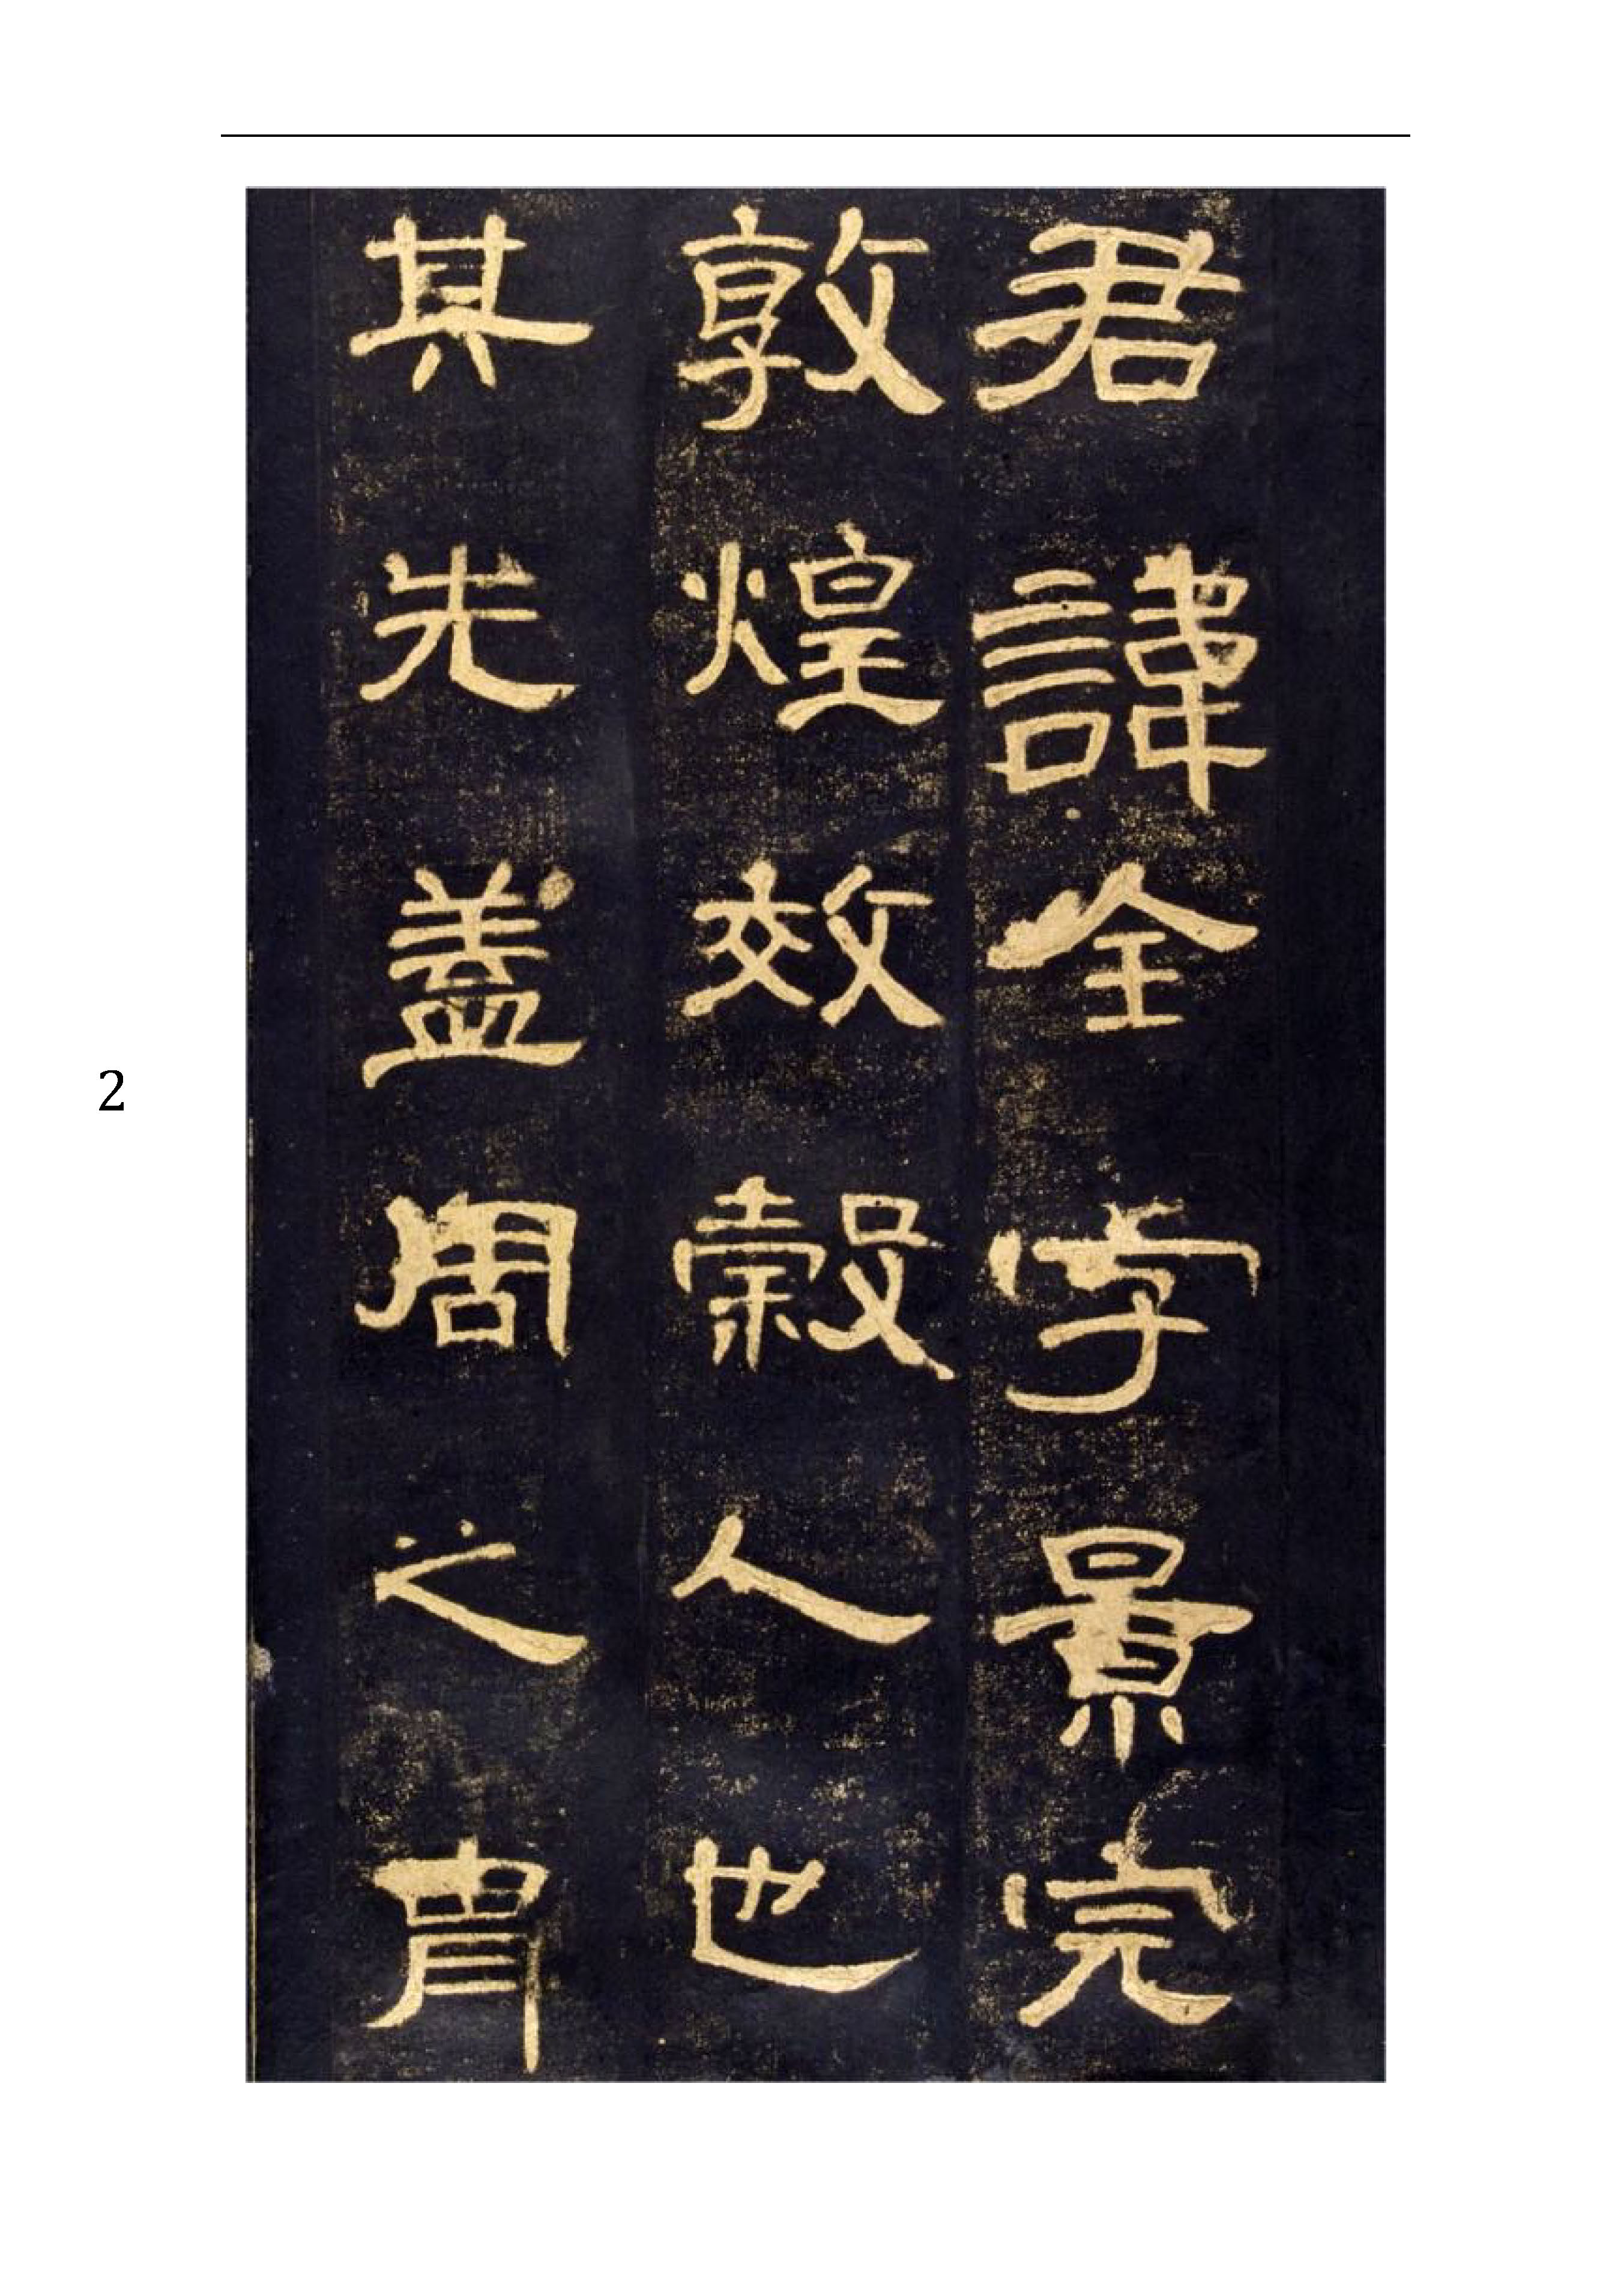 君諱全字景完
敦煌效穀人也
其先盖周之胄
2